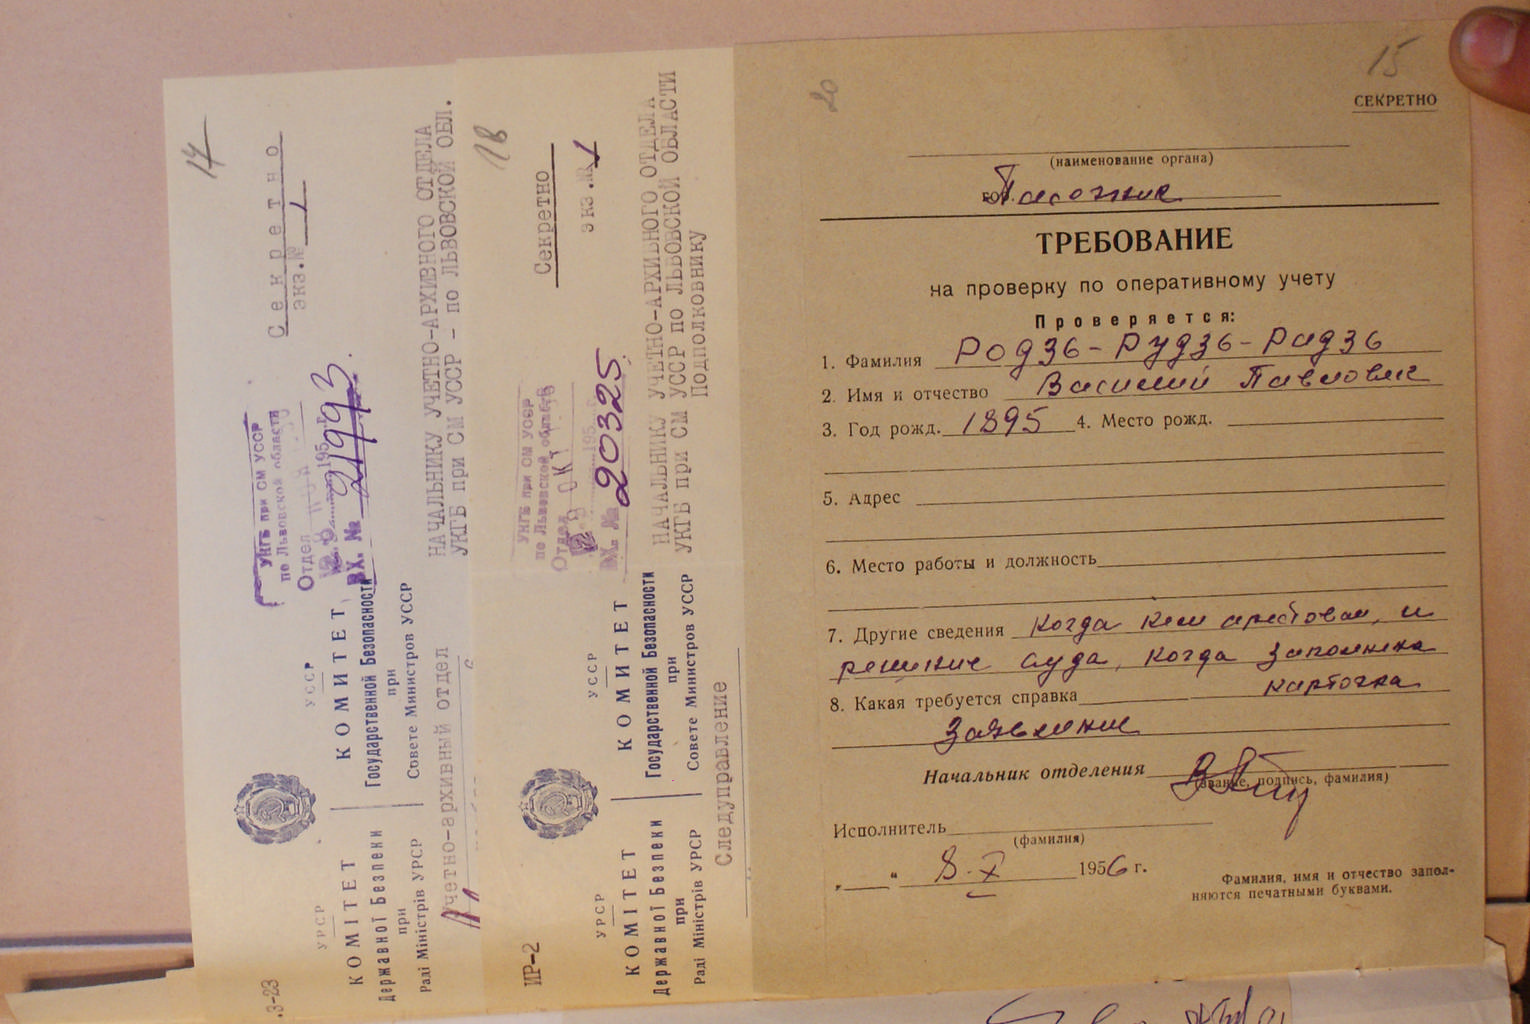 17
Секретно
экз.№ 1
УКГБ при СМ УССР
по Львовской области
Отдел
195 г.
ВХ. № 21993.
НАЧАЛЬНИКУ УЧЕТНО-АРХИВНОГО ОТДЕЛА
УКГБ при СМ УССР - по ЛЬВОВСКОЙ ОБЛ.
УРСР
КОМІТЕТ
Державної Безпеки
при
Раді Міністрів УРСР
УССР
КОМИТЕТ
Государственной Безопасности
при
Совете Министров УССР
Учетно-архивный отдел
.3-23
18
Секретно
экз.№ 1
УКГБ при СМ УССР
по Львовской области
Отдел
195
ВХ. № 20325
НАЧАЛЬНИКУ УЧЕТНО-АРХИВНОГО ОТДЕЛА
УКГБ при СМ УССР ПО ЛЬВОВСКОЙ ОБЛАСТИ
Подполковнику
УРСР
КОМІТЕТ
Державної Безпеки
при
Раді Міністрів УРСР
УССР
КОМИТЕТ
Государственной Безопасности
при
Совете Министров УССР
Следуправление
ИР-2
20
15
СЕКРЕТНО
(наименование органа)
ТРЕБОВАНИЕ
на проверку по оперативному учету
Проверяется:
1. Фамилия Родзь-Рудзь-Радзь
2. Имя и отчество Василий Павлович
3. Год рожд. 1895 4. Место рожд.
5. Адрес
6. Место работы и должность
7. Другие сведения когда кем арестован, и
решение суда, когда заполнена
8. Какая требуется справка карточка
Заявление
Начальник отделения
(звание, подпись, фамилия)
Исполнитель
(фамилия)
„ “ 8.X 1956 г.
Фамилия, имя и отчество запол-
няются печатными буквами.